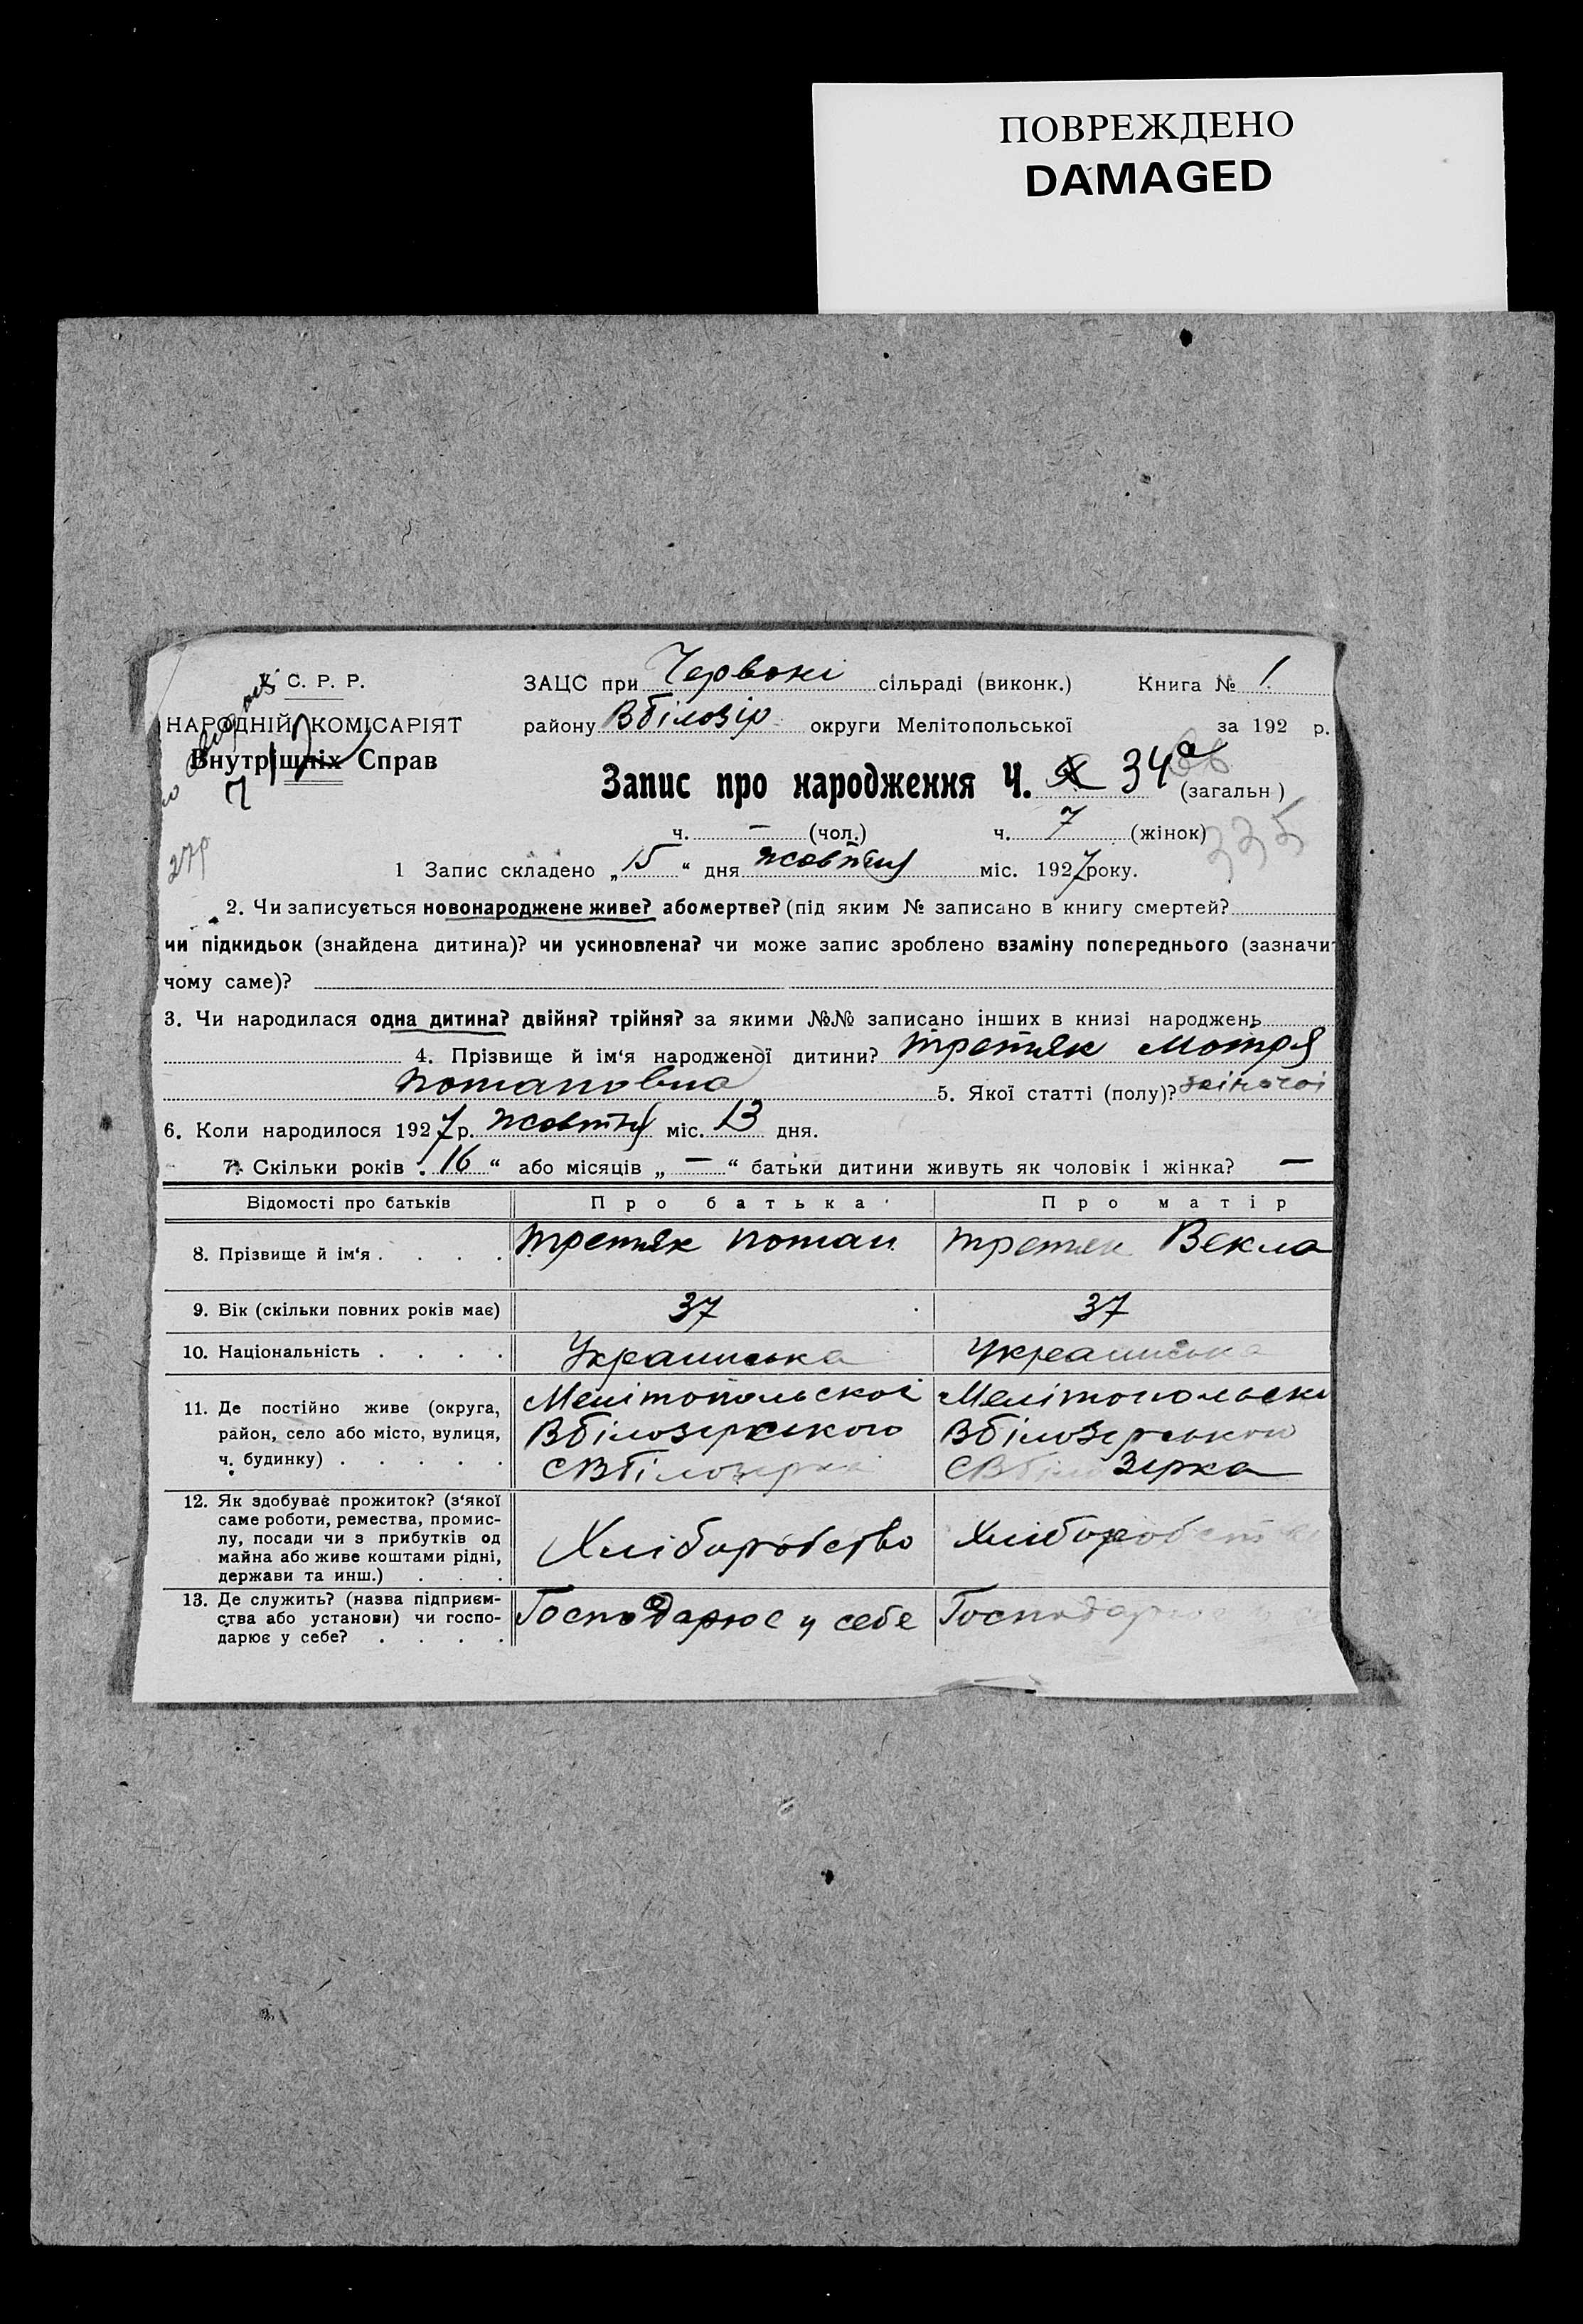 ПОВРЕЖДЕНО
DAMAGED
С. Р. Р.
НАРОДНІЙ КОМІСАРІЯТ
Внутрішніх Справ
ЗАЦС при Червоні сільраді (виконк.) Книга № 1
району ВБілозір округи Мелітопольської за 192 р.
Запис про народження Ч. 34а (загальн)
ч. — (чол.) ч. 7 (жінок)
335
279
1 Запис складено „15“ дня жовтня міс. 1927 року.
2. Чи записується новонароджене живе? або мертве? (під яким № записано в книгу смертей?
чи підкидьок (знайдена дитина)? чи усиновлена? чи може запис зроблено взаміну попереднього (зазначит
чому саме)?
3. Чи народилася одна дитина? двійня? трійня? за якими №№ записано інших в книзі народжень
4. Прізвище й ім‘я народженої дитини? Третяк Мотря
Потаповна 5. Якої статті (полу)? жіночоі
6. Коли народилося 1927 р. жовтня міс. 13 дня.
7. Скільки років „16“ або місяців „—“ батьки дитини живуть як чоловік і жінка? —
Відомості про батьків Про батька Про матір
8. Прізвище й ім‘я . . . . Третяк Потап Третяк Векла
9. Вік (скільки повних років має) 37 37
10. Національність . . . . Украинська Украинська
11. Де постійно живе (округа, район, село або місто, вулиця, ч. будинку) . . . . .
Мелітопольскоі Мелітопольски
ВБілозирского ВБілозерського
СВБілозерка СВБілозерка
12. Як здобуває прожиток? (з‘якої
саме роботи, ремества, промис-
лу, посади чи з прибутків од
майна або живе коштами рідні,
держави та инш.) . . .
Хліборобство Хліборобство
13. Де служить? (назва підприєм-
ства або установи) чи госпо-
дарює у себе? . . . .
Господарює у себе Господар